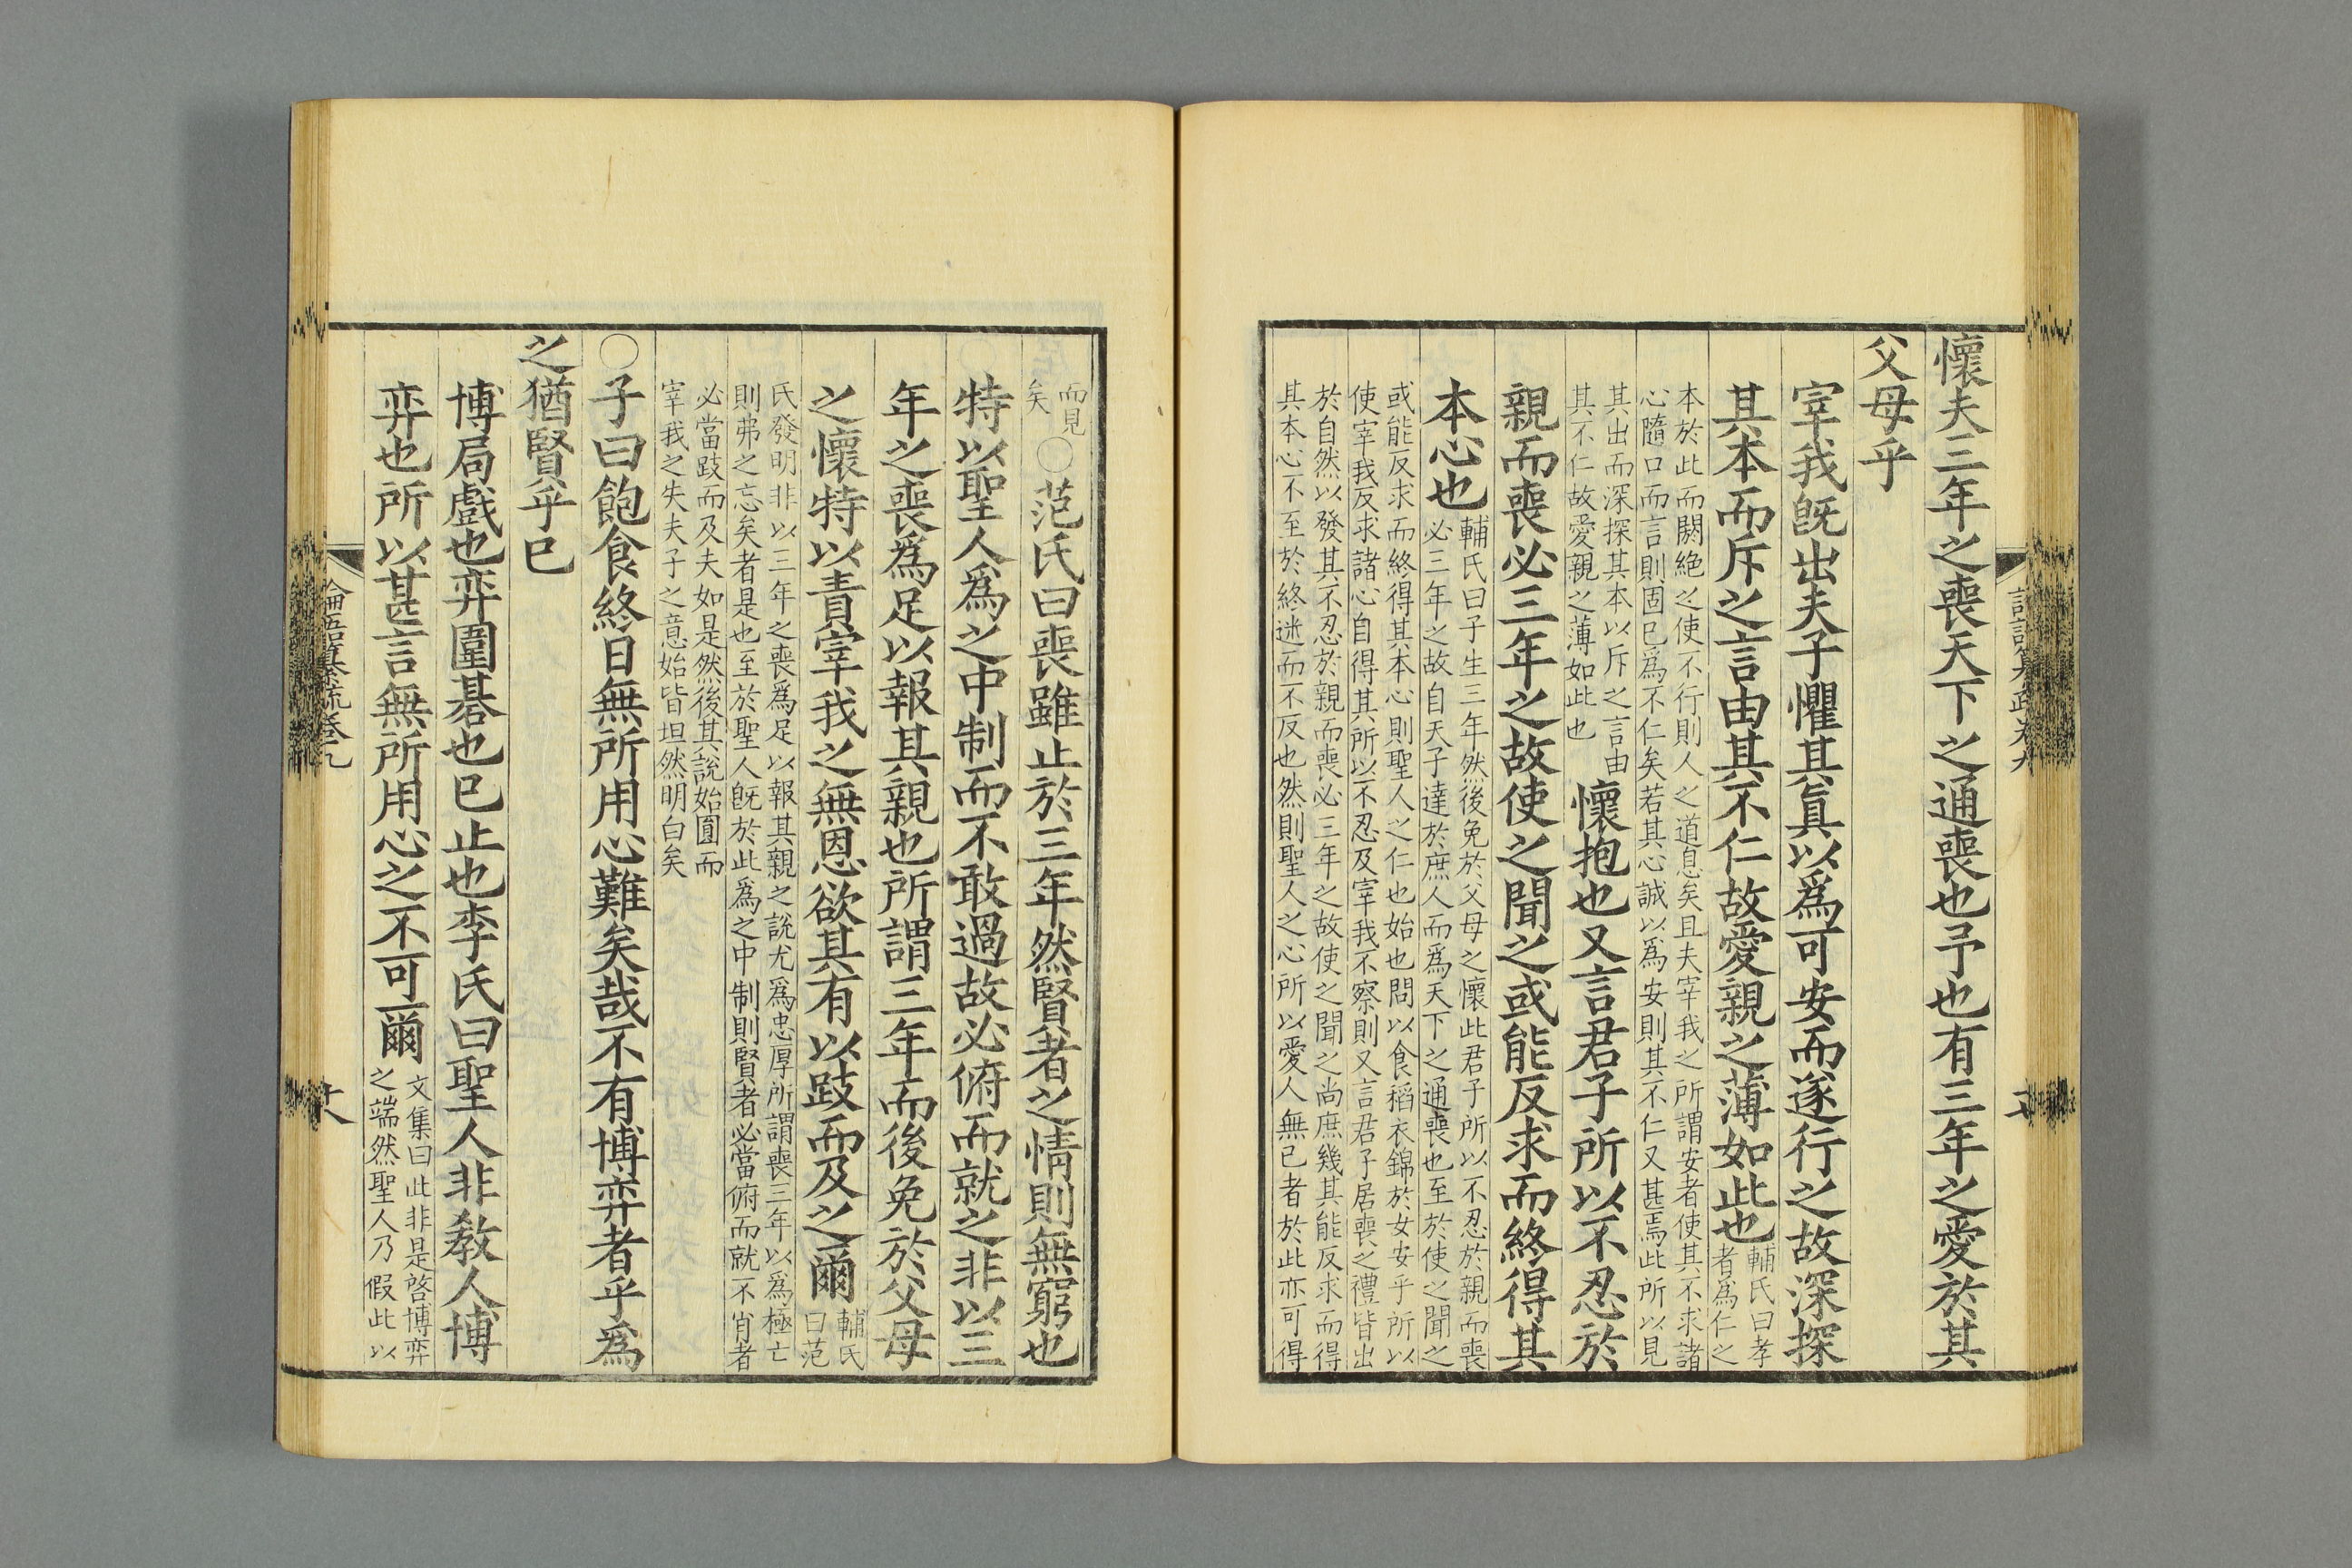 懷夫三年之喪天下之通喪也予也有三年之愛於其
父母乎
宰我旣出夫子懼其眞以爲可安而遂行之故深探
其本而斥之言由其不仁故愛親之薄如此也
輔氏曰孝
者為仁之
本於此而闕絶之使不行則人之道息矣且夫宰我之所謂安者使其不求諸
心隨口而言則固已爲不仁矣若其心誠以爲安則其不仁又甚焉此所以見
其出而深探其本以斥之言由
其不仁故愛親之薄如此也
懷抱也又言君子所以不忍於
親而喪必三年之故使之聞之或能反求而終得其
本心也
輔氏曰子生三年然後免於父母之懷此君子所以不忍於親而喪
必三年之故自天子達於庶人而爲天下之通喪也至於使之聞之
或能反求而終得其本心則聖人之仁也始也問以食稻衣錦於女安乎所以
使宰我反求諸心自得其所以不忍及宰我不察則又言君子居喪之禮皆出
於自然以發其不忍於親而喪必三年之故使之聞之尚庶幾其能反求而得
其本心不至於終迷而不反也然則聖人之心所以愛人無已者於此亦可得
而見
矣
○范氏曰喪雖止於三年然賢者之情則無窮也
特以聖人爲之中制而不敢過故必俯而就之非以三
年之喪爲足以報其親也所謂三年而後免於父母
之懷特以責宰我之無恩欲其有以跂而及之爾
輔氏
曰范
氏發明非以三年之喪爲足以報其親之說尤爲忠厚所謂喪三年以爲極亡
則弗之忘矣者是也至於聖人旣於此爲之中制則賢者必當俯而就不肖者
必當跂而及夫如是然後其說始圓而
宰我之失夫子之意始皆坦然明白矣
○子曰飽食終日無所用心難矣哉不有博弈者乎爲
之猶賢乎已
博局戲也弈圍碁也已止也李氏曰聖人非敎人博
弈也所以甚言無所用心之不可爾
文集曰此非是啓博弈
之端然聖人乃假此以
論語纂疏卷九